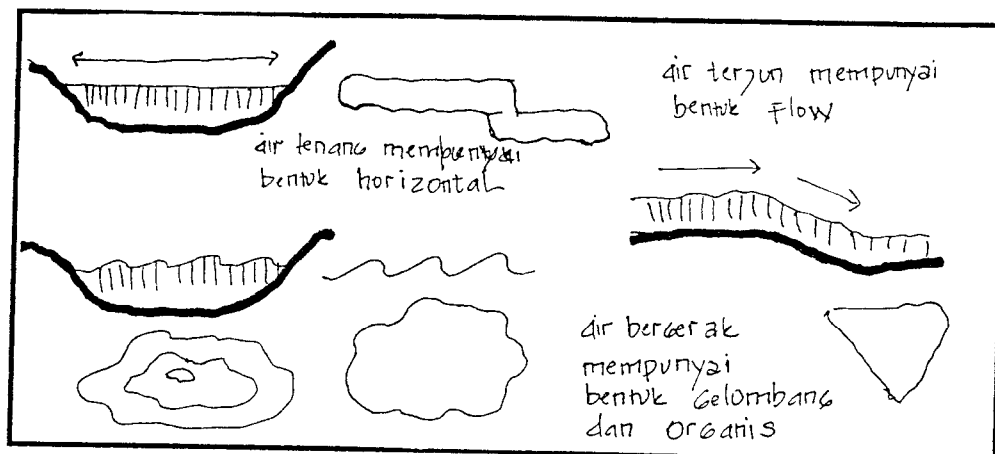 air tenang mempunyai
bentuk horizontal
air terjun mempunyai
bentuk Flow
air bergerak
mempunyai
bentuk gelombang
dan organis